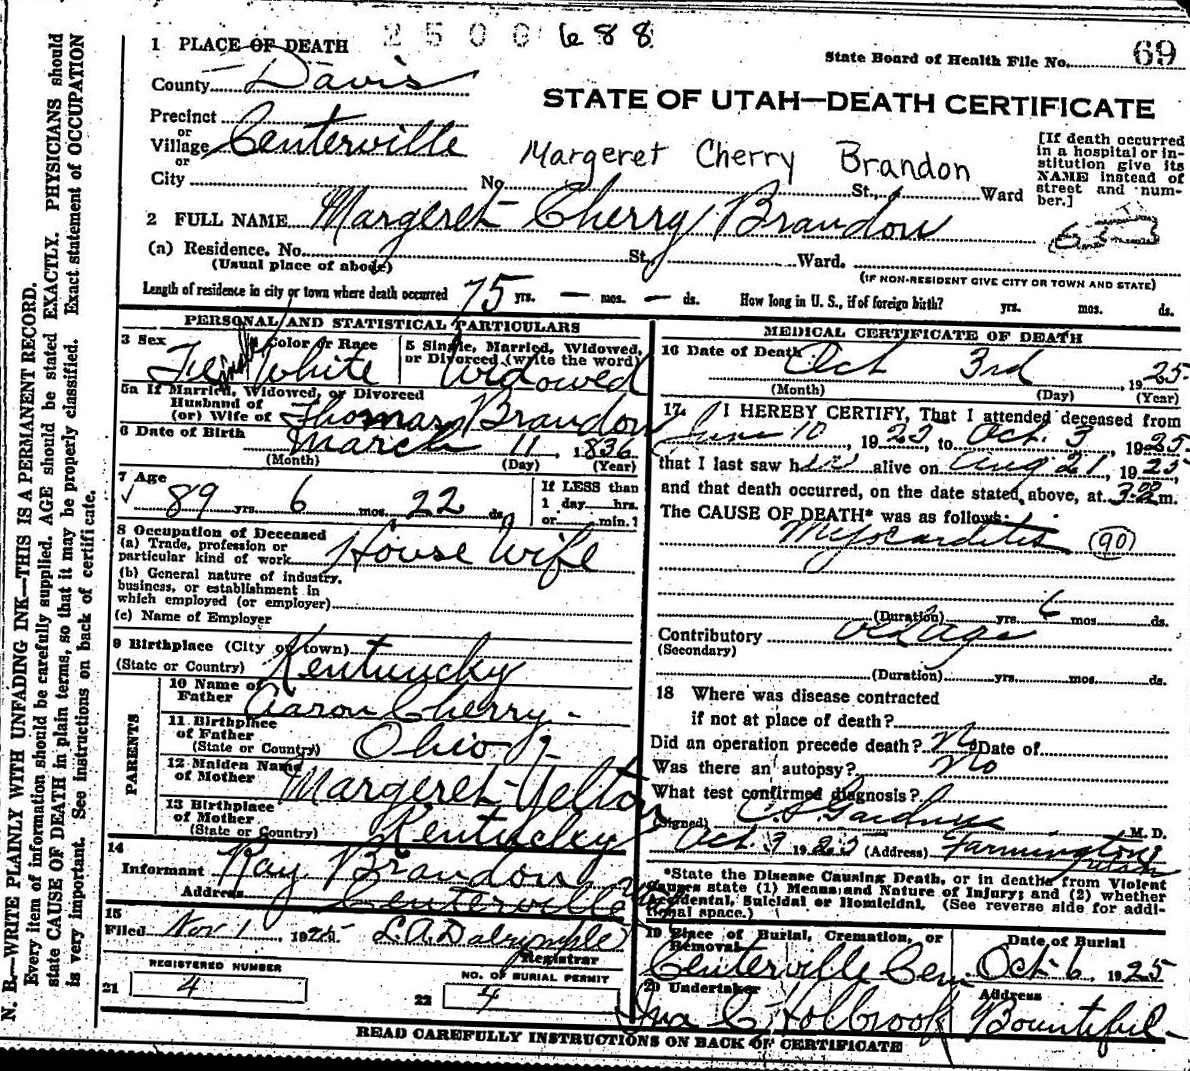 2500688
1 PLACE OF DEATH
State Board of Health File No. 69
County Davis
STATE OF UTAH—DEATH CERTIFICATE
Precinct
or
Village Centerville
or
Margeret Cherry Brandon
[If death occurred in a hospital or in-
stitution give its
NAME instead of
street and num-
ber.]
City No. St., Ward
2 FULL NAME Margeret Cherry Brandon
(a) Residence. No. St. Ward.
(Usual place of abode)
(IF NON-RESIDENT GIVE CITY OR TOWN AND STATE)
Length of residence in city or town where death occurred 75 yrs. — mos. — ds. How long in U. S., if of foreign birth? yrs. mos. ds.
PERSONAL AND STATISTICAL PARTICULARS
3 Sex Female
4 Color or Race White
5 Single, Married, Widowed,
or Divorced (write the word)
Widowed
5a If Married, Widowed, or Divorced
Husband of
(or) Wife of Thomas Brandon
6 Date of Birth March 11, 1836
(Month) (Day) (Year)
7 Age
89 yrs. 6 mos. 22 ds.
If LESS than
1 day hrs.
or min.?
8 Occupation of Deceased
(a) Trade, profession or
particular kind of work House Wife
(b) General nature of industry,
business, or establishment in
which employed (or employer)
(c) Name of Employer
9 Birthplace (City or town)
(State or Country) Kentuncky
PARENTS
10 Name of
Father Aaron Cherry -
11 Birthplace
of Father
(State or Country) Ohio
12 Maiden Name
of Mother Margeret Yelton
13 Birthplace
of Mother
(State or Country) Kentucky
14
Informant Ray Brandon
Address Centerville
15
Filed Nov 1 1925 L.A. Dalrymple
Registrar
REGISTERED NUMBER
21 4
NO. OF BURIAL PERMIT
22 4
MEDICAL CERTIFICATE OF DEATH
16 Date of Death Oct 3rd, 1925
(Month) (Day) (Year)
17. I HEREBY CERTIFY, That I attended deceased from
June 10, 1923, to Oct. 3, 1925.
that I last saw her alive on Aug 21, 1925,
and that death occurred, on the date stated above, at m.
The CAUSE OF DEATH* was as follows:
Myocarditis (90)
(Duration) yrs. 6 mos. ds.
Contributory old age
(Secondary)
(Duration) yrs. mos. ds.
18 Where was disease contracted
if not at place of death?
Did an operation precede death? No Date of
Was there an autopsy? No
What test confirmed diagnosis?
(Signed) C. S. Gardner M. D.
Oct. 3 1925 (Address) Farmington
Utah
*State the Disease Causing Death, or in deaths from Violent
Causes state (1) Means and Nature of Injury; and (2) whether
Accidental, Suicidal or Homicidal. (See reverse side for addi-
tional space.)
19 Place of Burial, Cremation, or
Removal
Centerville Cem
Date of Burial
Oct 6 1925
20 Undertaker
Holbrook
Address
Bountiful
READ CAREFULLY INSTRUCTIONS ON BACK OF CERTIFICATE
N. B.—WRITE PLAINLY WITH UNFADING INK—THIS IS A PERMANENT RECORD.
Every item of information should be carefully supplied. AGE should be stated EXACTLY. PHYSICIANS should
state CAUSE OF DEATH in plain terms, so that it may be properly classified. Exact statement of OCCUPATION
is very important. See instructions on back of certificate.